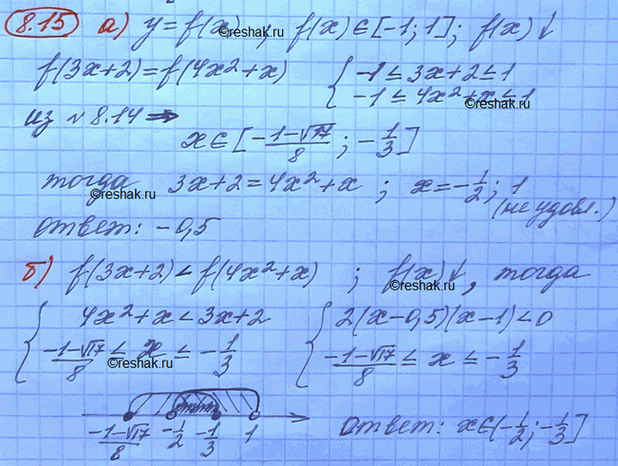 8.15 а) y = f(x) ↓, f(x) ∈ [-1; 1]; f(x) ↓
©reshak.ru
f(3x+2) = f(4x²+x) { -1 ≤ 3x+2 ≤ 1
-1 ≤ 4x²+x ≤ 1
©reshak.ru
из №8.14 ⇒
x ∈ [ (-1-√17)/8 ; -1/3 ]
тогда 3x+2 = 4x²+x ; x = -1/2 ; 1
©reshak.ru
(не удовл.)
ответ: -0,5
б) f(3x+2) < f(4x²+x) ; f(x) ↓, тогда
©reshak.ru
{ 4x²+x < 3x+2 { 2(x-0,5)(x-1) < 0
(-1-√17)/8 ≤ x ≤ -1/3 (-1-√17)/8 ≤ x ≤ -1/3
©reshak.ru
(-1-√17)/8 -1/2 -1/3 1 ответ: x ∈ (-1/2; -1/3]